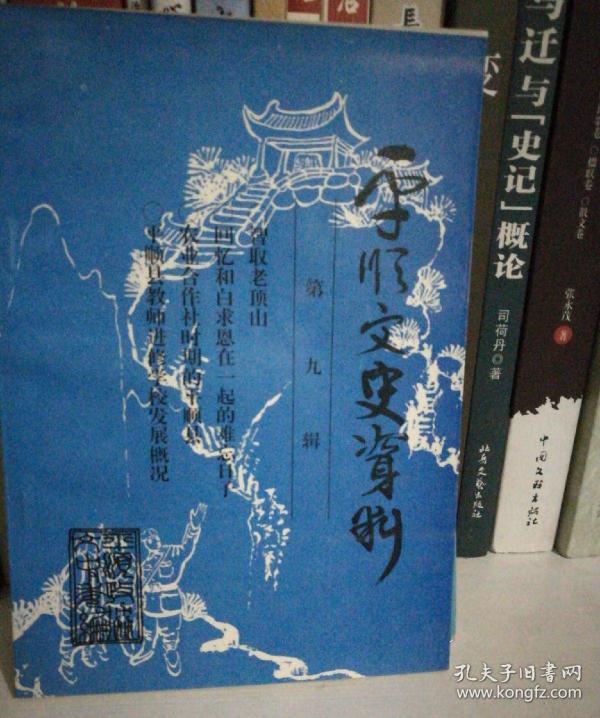 平顺文史资料
第九辑
智取老顶山
回忆和白求恩在一起的难忘日子
农业合作社时期的平顺县
平顺县教师进修学校发展概况
马迁与「史记」概论
司荷丹◎著
北岳文艺出版社
变
散文卷
张永茂 著
中国文联出版社
孔夫子旧书网
www.kongfz.com